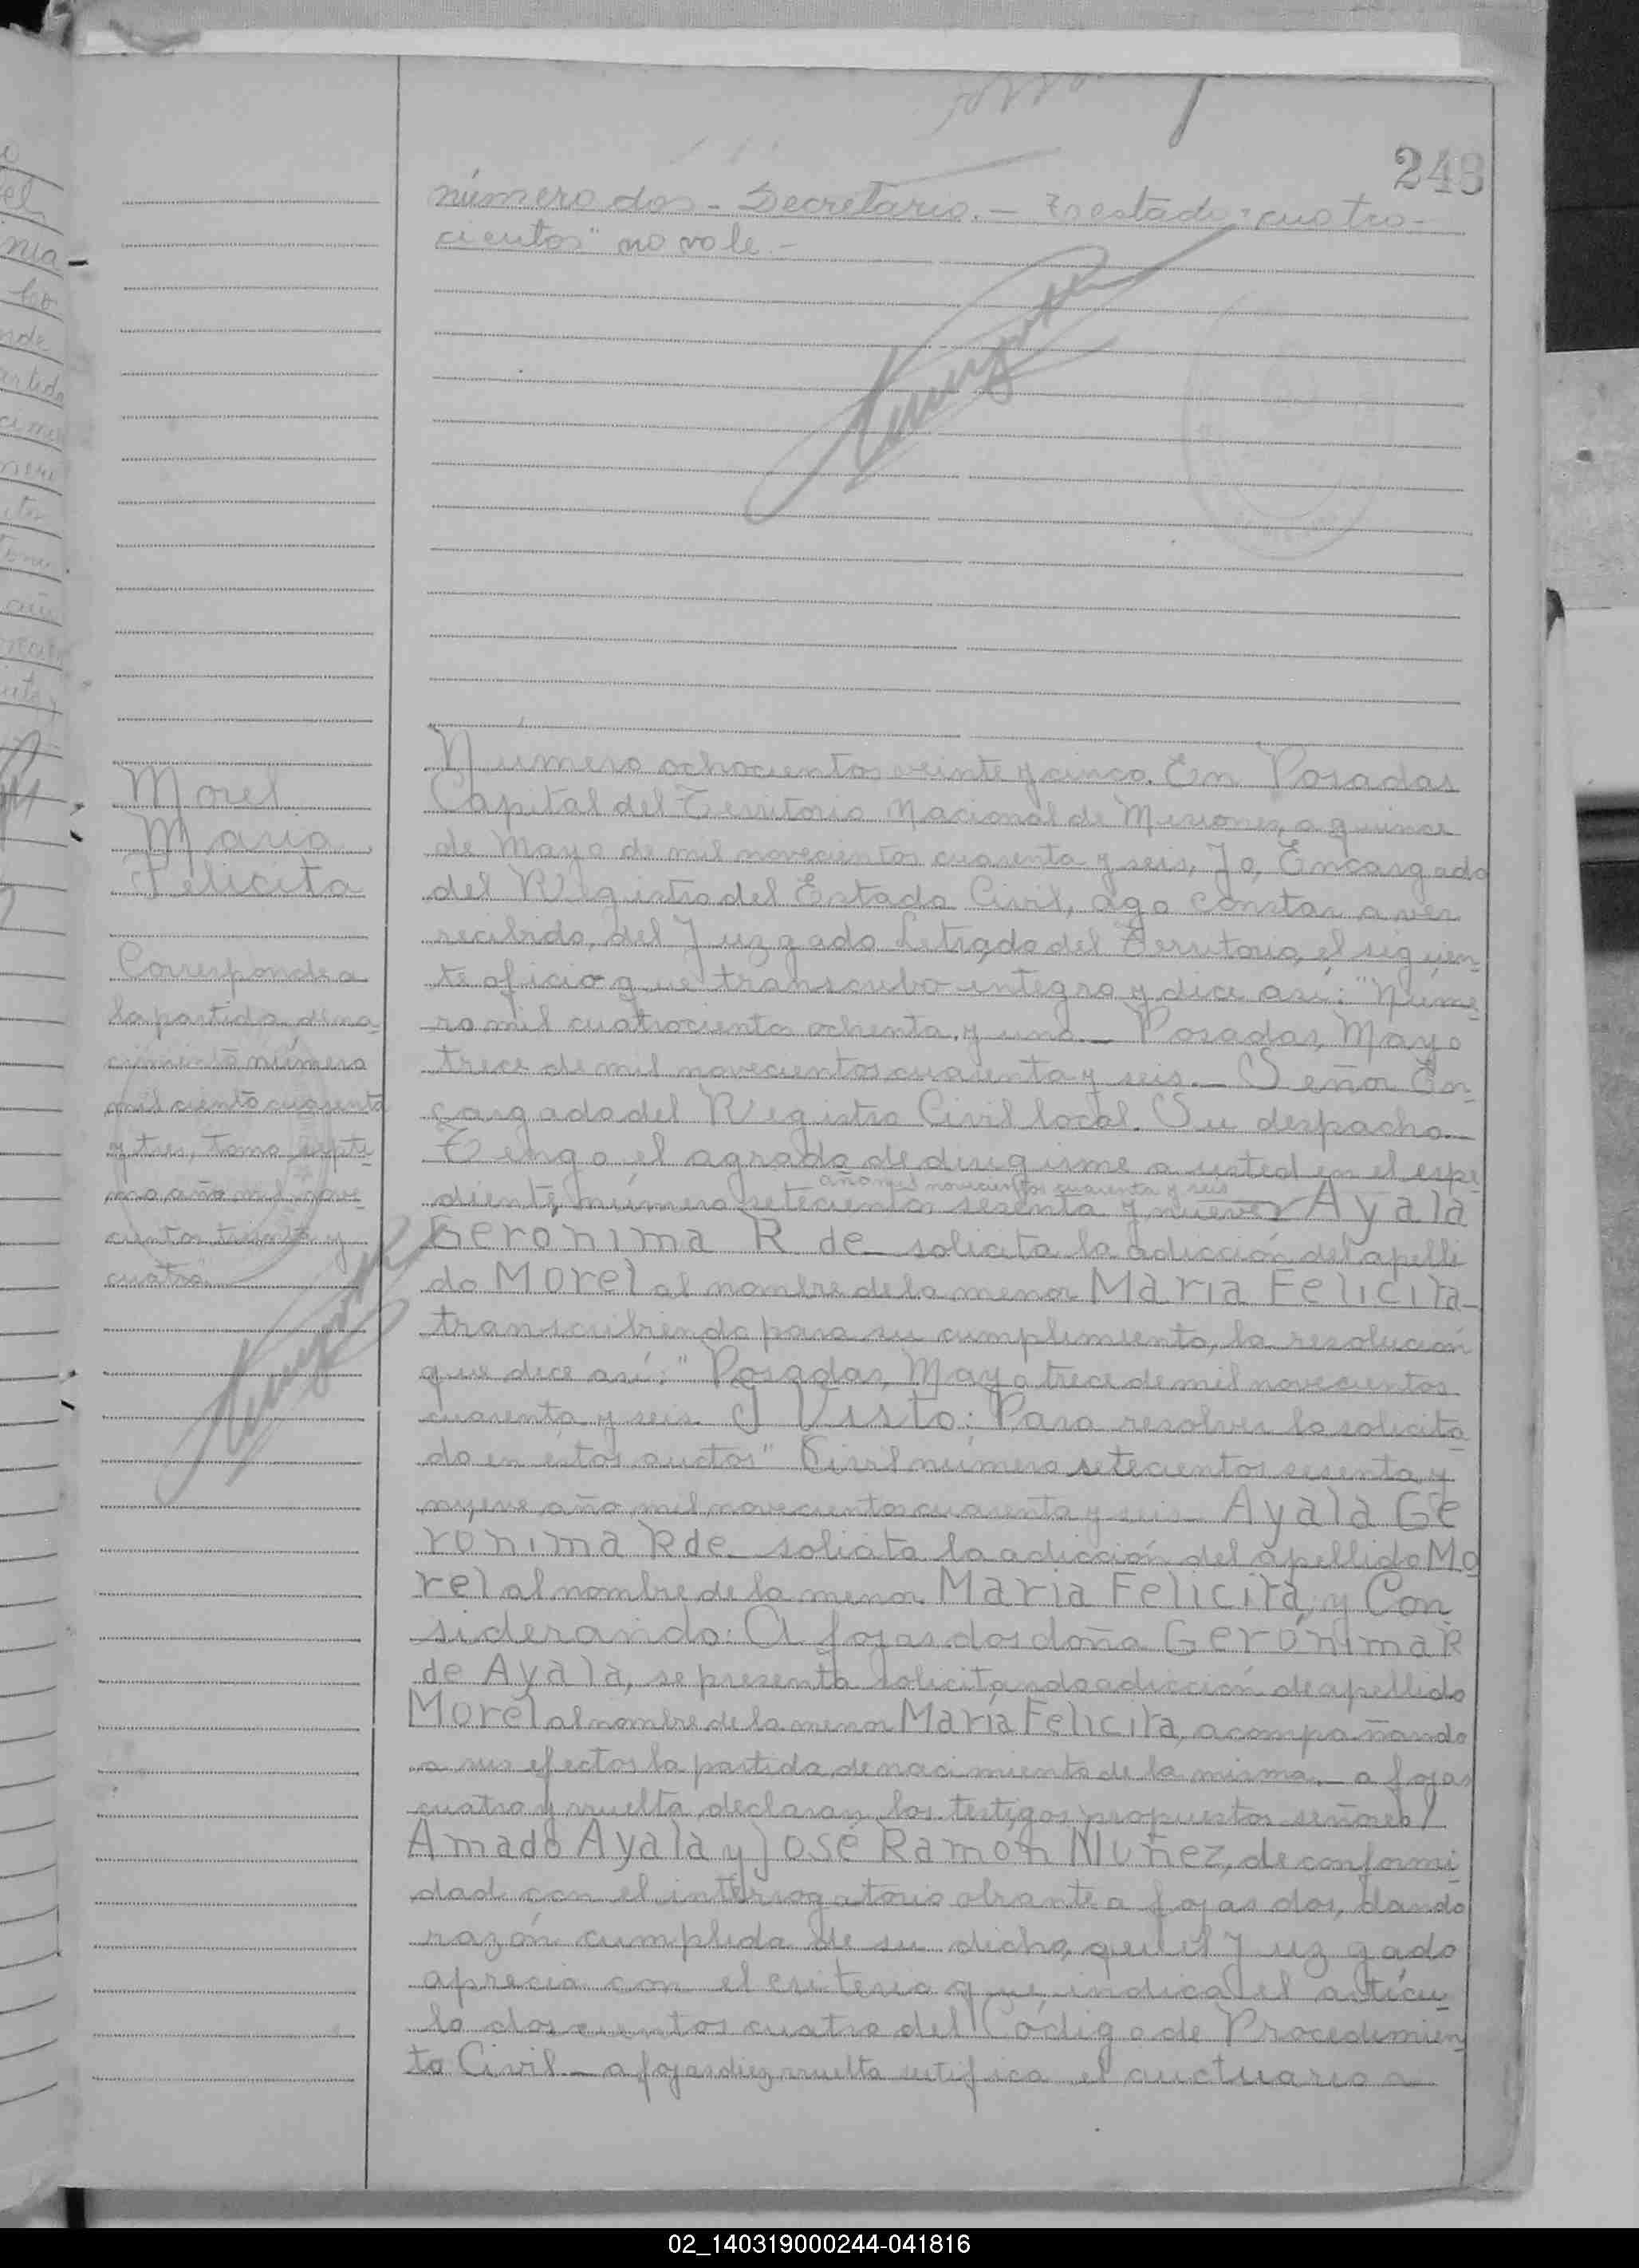 248
número dos - Secretario. - Testado: "cuatro-
cientos" no vale -
Morel
Maria
Felicita
Corresponde a
la partida de na
cimiento número
mil ciento cuarenta
y tres, tomo septi
mo año mil nove
cientos treinta y
cuatro.
Número ochocientos veinte y cinco. En Posadas
Capital del Territorio Nacional de Misiones, a quince
de Mayo de mil novecientos cuarenta y seis, Yo, Encargado
del Registro del Estado Civil, ago constar aver
recibido, del Juzgado Letrado del Territorio, el siguien-
te oficio que transcribo integro y dice así: "Núme-
ro mil cuatrocientos ochenta y uno. - Posadas, Mayo
trece de mil novecientos cuarenta y seis. - Señor En-
cargado del Registro Civil local. Su despacho. -
Tengo el agrado de dirigirme a usted en el espe-
año mil novecientos cuarenta y seis
diente, número setecientos sesenta y nueve Ayala
Geronima R de - solicita la adicción del apelli
do Morel al nombre de la menor Maria Felicita -
transcribiendo para su cumplimiento, la resolución
que dice así: "Posadas, Mayo trece de mil novecientos
cuarenta y seis. Y Visto: Para resolver lo solicita-
do en estos auctos" Civil número setecientos sesenta y
nueve año mil novecientos cuarenta y seis - Ayala Ge
ronima R de - solicita la adicción del apellido Mo
rel al nombre de la menor Maria Felicita, y Con
siderando: A fojas dos doña Gerónima R
de Ayala, se presenta solicitando adicción de apellido
Morel al nombre de la menor María Felicita, acompañando
a sus efectos la partida de nacimiento de la misma. - a fojas
cuatro y vuelta, declaran los testigos propuestos señores
Amado Ayala y José Ramón Nuñez, de conformi-
dad con el interrogatorio obrante a fojas dos, dando
razón cumplida de su dicho, que el Juzgado
aprecia con el criterio que indica el artícu-
lo doscientos cuatro del Código de Procedimien
to Civil - a fojas diez vuelta sertifica el auctuario
02_140319000244-041816